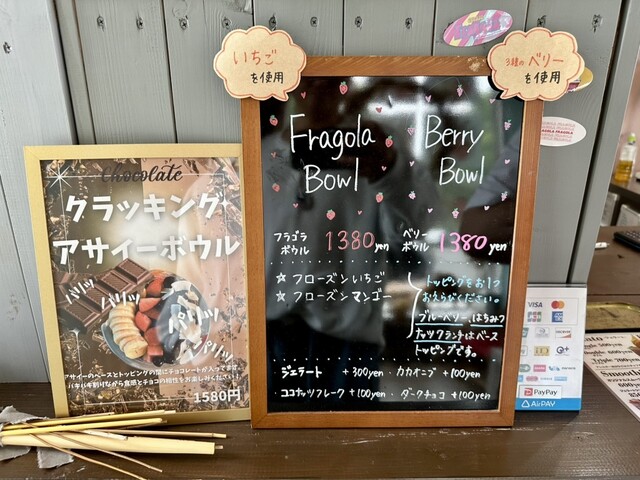 Chocolate
クラッキング
アサイーボウル
パリッ
パリッ
パリッ
パパリッ
アサイーのベースとトッピングの間にチョコレートが入ってます
パキパキ割りながら食感とチョコの相性をお楽しみください!
1580円
いちご
を使用
3種のベリー
を使用
Fragola
Bowl
Berry
Bowl
フラゴラ
ボウル 1380yen
ベリー
ボウル 1380yen
☆ フローズンいちご
☆ フローズンマンゴー
トッピングをお1つ
おえらびください。
ブルーベリー、はちみつ
ナッツクランチはベース
トッピングです。
ジェラート +300yen ・カカオニブ +100yen
ココナッツフレーク +100yen ・ダークチョコ +100yen
VISA
PayPay
AirPAY